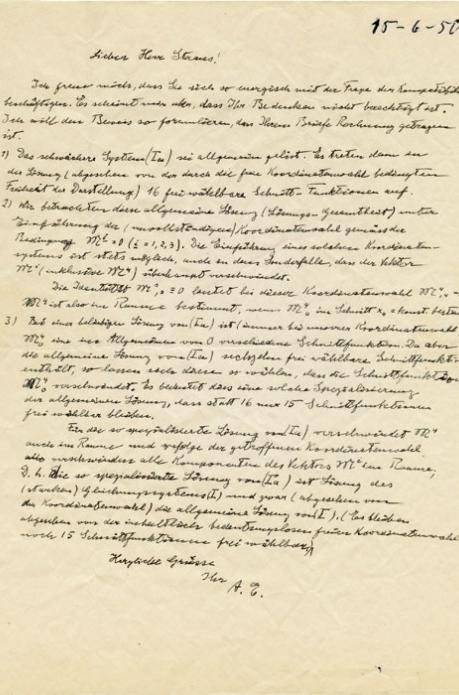 15-6-50
Lieber Herr Straus!
Ich freue mich, dass Sie sich so energisch mit der Frage der Kompatibilität
beschäftigen. Es scheint mir aber, dass Ihr Bedenken nicht berechtigt ist.
Ich will den Beweis so formulieren, dass Ihrem Briefe Rechnung getragen
ist.
1) Das schwächere System (Ia) sei allgemein gelöst. Es treten dann in
der Lösung (abgesehen von der durch die freie Koordinatenwahl bedingten
Freiheit der Darstellung) 16 frei wählbare Schnitt-Funktionen auf.
2) Wir betrachten diese allgemeine Lösung (Lösungs-Gesamtheit) unter
Einführung der (unvollständigen) Koordinatenwahl gemäss der
Bedingung 𝔐ⁱ = 0 (i = 1, 2, 3). Die Einführung eines solchen Koordinaten-
systems ist stets möglich, auch in dem Sonderfalle, dass der Vektor
𝔐ⁱ (inklusive 𝔐⁴) überhaupt verschwindet.
Die Identität lautet bei dieser Koordinatenwahl
ist also im Raume bestimmt, wenn im Schnitt x₄ = konst.
3) Bei einer beliebigen Lösung von (Ia) ist (immer bei unserer Koordinatenwahl)
𝔐⁴ eine im Allgemeinen von 0 verschiedene Schnittfunktion. Da aber
die allgemeine Lösung von (Ia) sechzehn frei wählbare Schnittfunkti-
enthält, so lassen sich diese so wählen, dass die Schnittfunktion
𝔐⁴ verschwindet. Es bedeutet dies eine solche Spezialisierung
der allgemeinen Lösung, dass statt 16 nur 15 Schnittfunktionen
frei wählbar bleiben.
Für die so spezialisierte Lösung von (Ia) verschwindet 𝔐⁴
auch im Raume und zufolge der getroffenen Koordinatenwahl
also verschwinden alle Komponenten des Vektors 𝔐ⁱ im Raume,
D. h. Die so spezialisierte Lösung von (Ia) ist Lösung des
(starken) Gleichungssystems (I) und zwar (abgesehen von
der Koordinatenwahl) die allgemeine Lösung von I). (Es bleiben
abgesehen von der inhaltlich bedeutungslosen freien Koordinatenwahl
noch 15 Schnittfunktionen frei wählbar)
Herzliche Grüsse
Ihr
A. E.